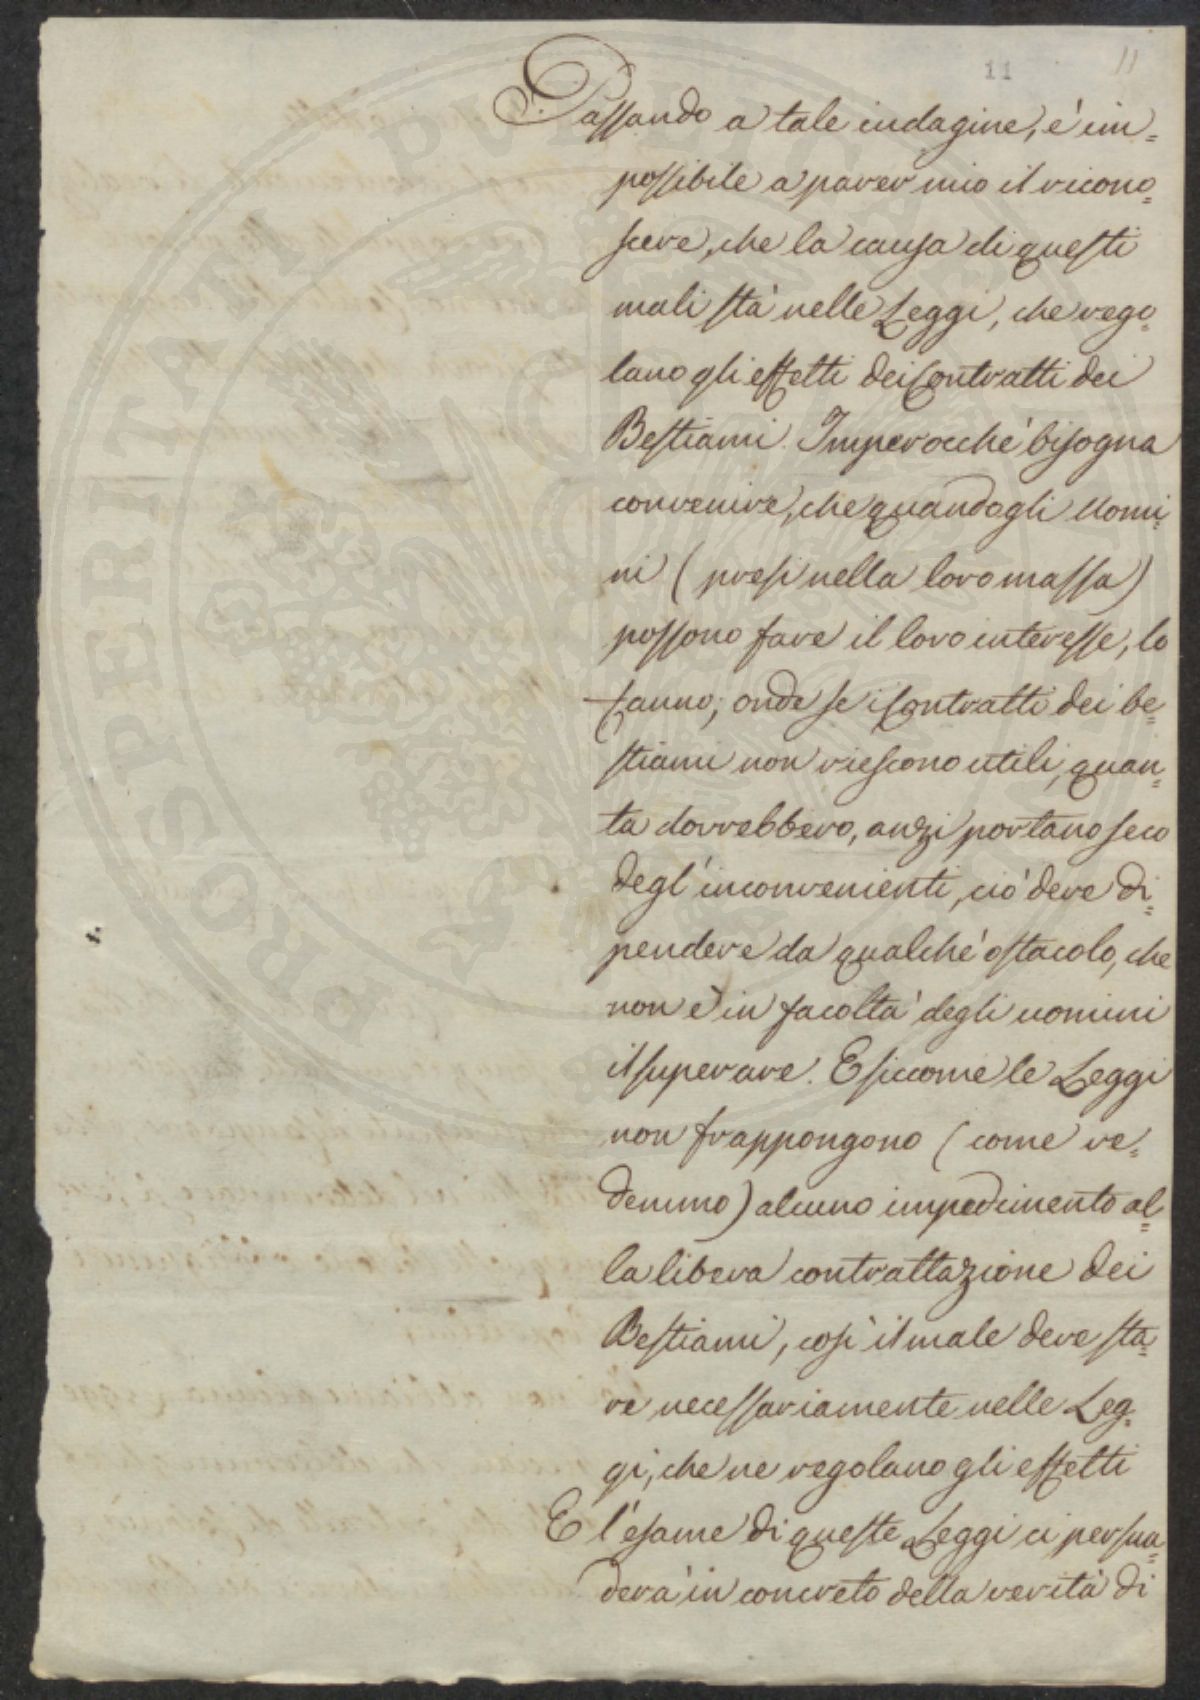 11 11
Passando a tale indagine, è im=
possibile a parer mio il ricono=
scere, che la causa di questi
mali stà nelle Leggi, che rego=
lano gli effetti dei Contratti dei
Bestiami. Imperocchè bisogna
convenire, che quando gli Uomi=
ni (presi nella loro massa)
possono fare il loro interesse, lo
fanno; onde se i Contratti dei be=
stiami non riescono utili, quan=
to dovrebbero, anzi portano seco
degl'inconvenienti, ciò deve di=
pendere da qualchè ostacolo, che
non è in facoltà degli uomini
il superare. E siccome le Leggi
non frappongono (come ve=
demmo) alcuno impedimento al=
la libera contrattazione dei
Bestiami, così il male deve sta=
re necessariamente nelle Leg=
gi, che ne regolano gli effetti
E l'esame di queste Leggi ci persua=
derà in concreto della verità di
PROSPERITATI PVBLICAE